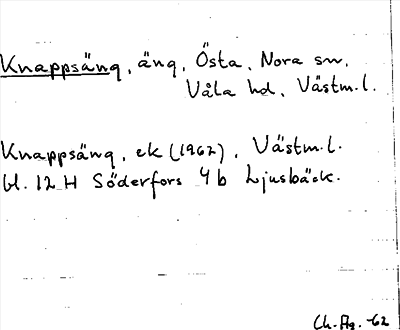 Knappsäng, äng, Östa, Nora sn,
Våla hd, Västm.l.
Knappsäng, ek (1962), Västm.l.
bl. 12 H Söderfors 4 b Ljusbäck.
Ch. Ag. -62